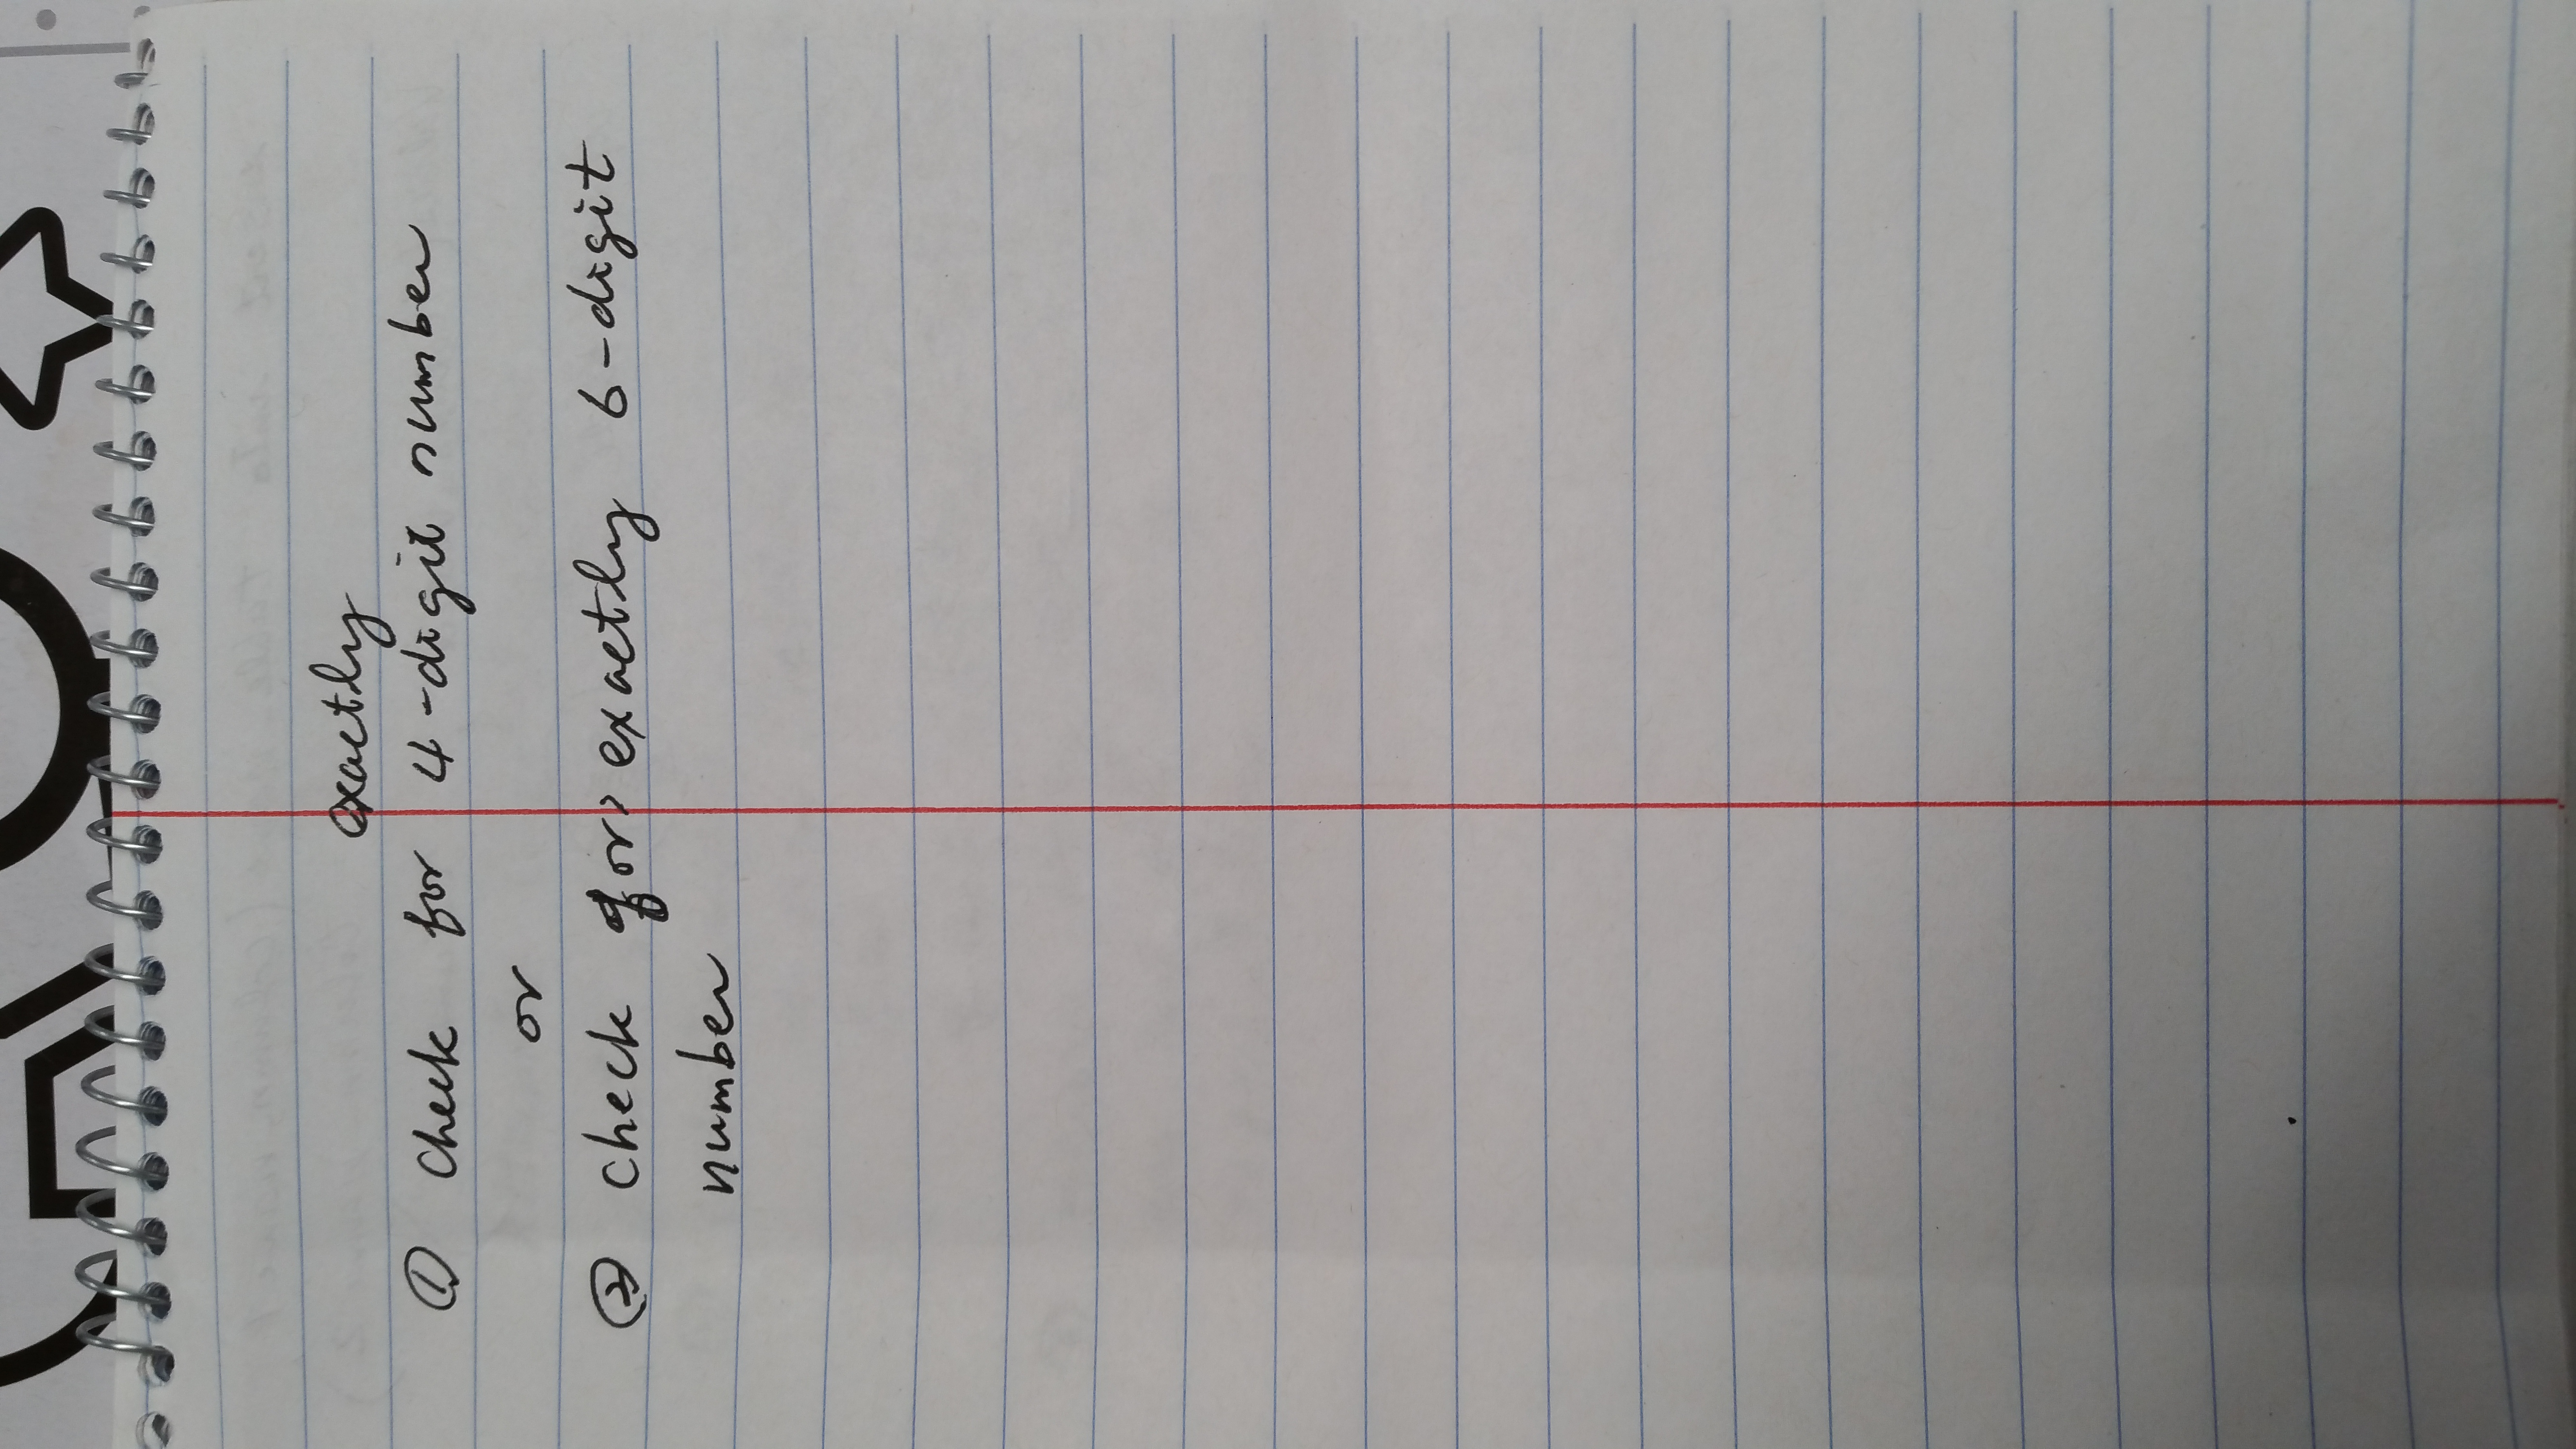 exactly
① check for 4-digit number
or
② check for exactly 6-digit
number